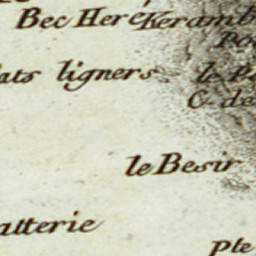 Bec Here Keramb
Po
ats ligners le Pa
C. de
le Besir
atterie
Pte